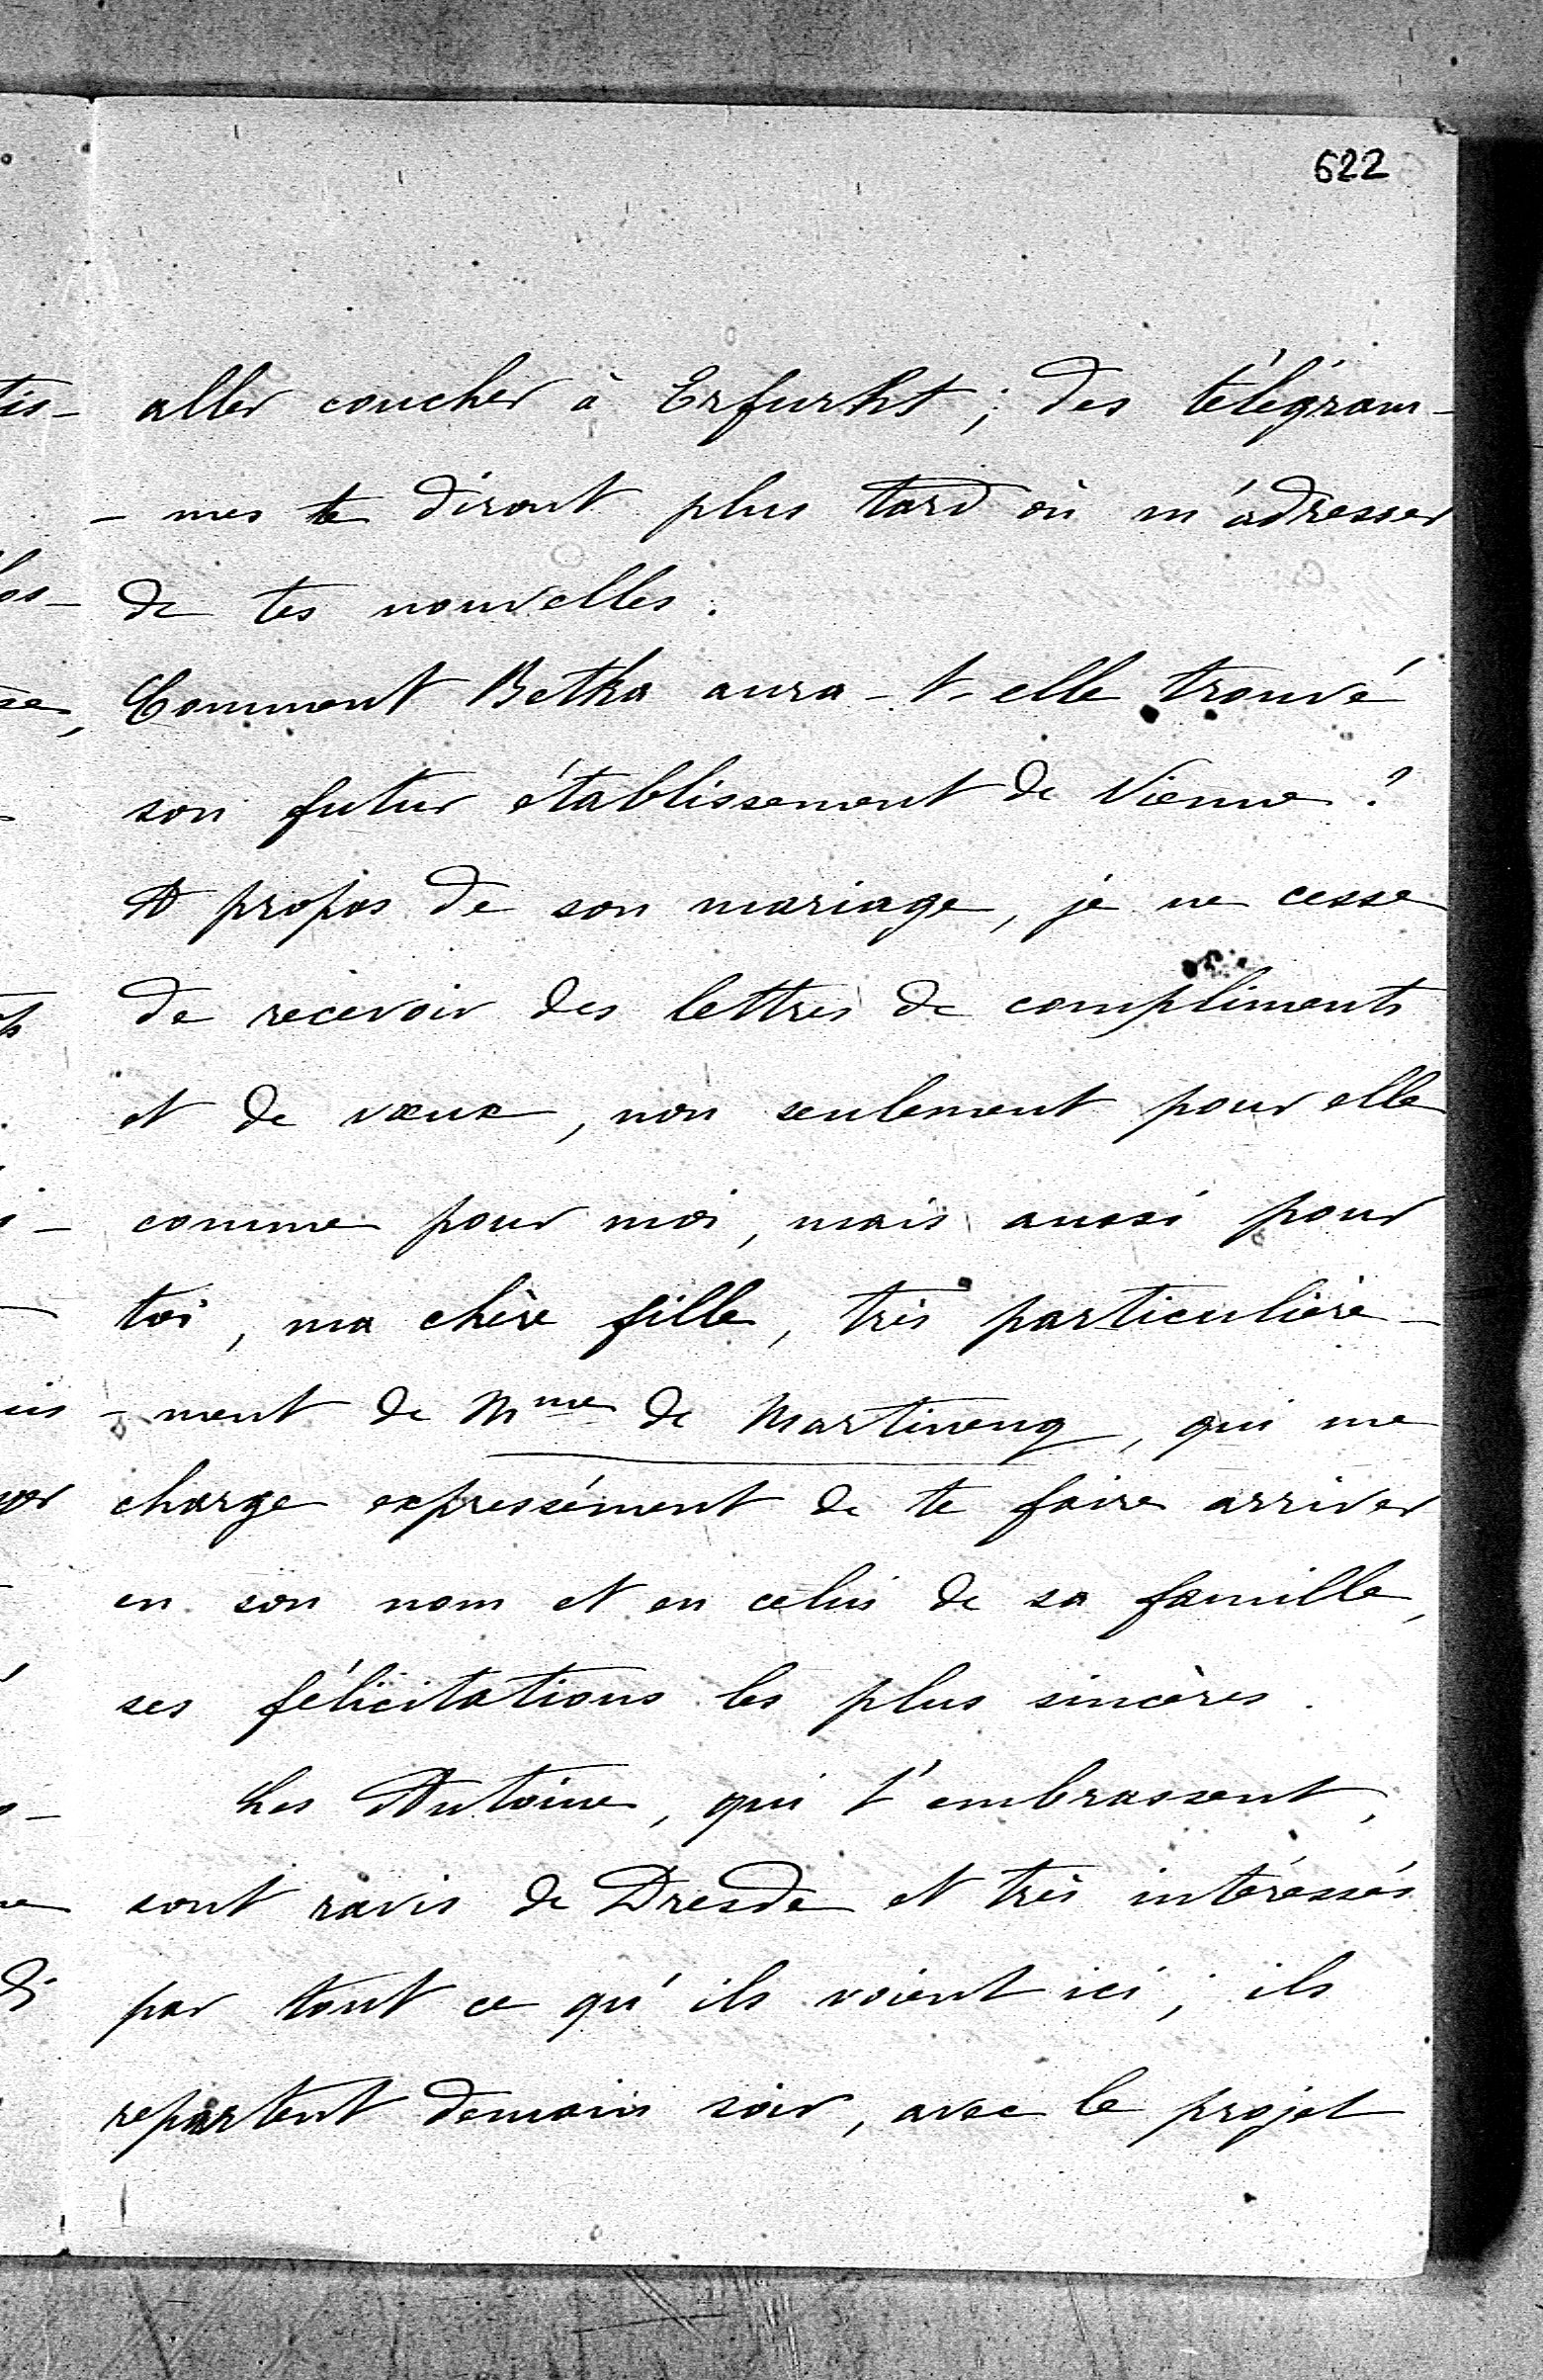 622
aller coucher à Erfurht ; des télégram-
- mes te diront plus tard où m'adresser
de tes nouvelles.
Comment Betka aura-t-elle trouvé
son futur établissement de Vienne ?
A propos de son mariage, je ne cesse
de recevoir des lettres de compliments
et de vœux, non seulement pour elle
comme pour moi, mais aussi pour
toi, ma chère fille, très particulière-
- ment de Mme de Martinenq, qui me
charge expressément de te faire arriver
en son nom et en celui de sa famille,
ses félicitations les plus sincères.
Les Antoine, qui t'embrassent,
sont ravis de Dresde et très intéressés
par tout ce qu'ils voient ici ; ils
repartent demain soir, avec le projet